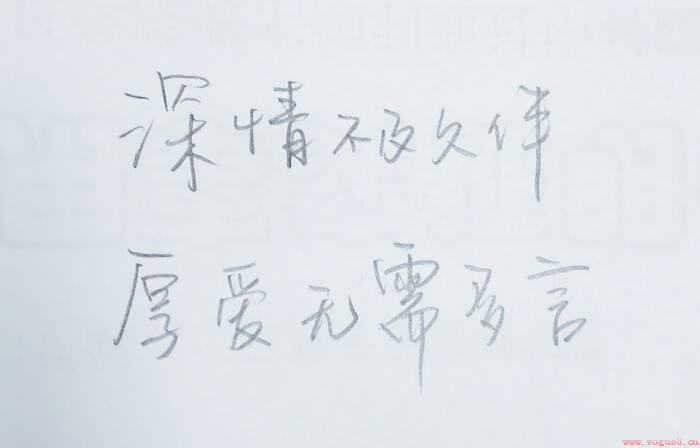 深情不及久伴
厚爱无需多言
www.vogue8.cn